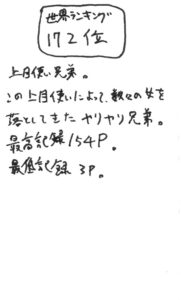 世界ランキング
172位
上目使い兄弟。
この上目使いによって、数々の女を
落としてきたヤリヤリ兄弟。
最高記録154P。
最低記録3P。